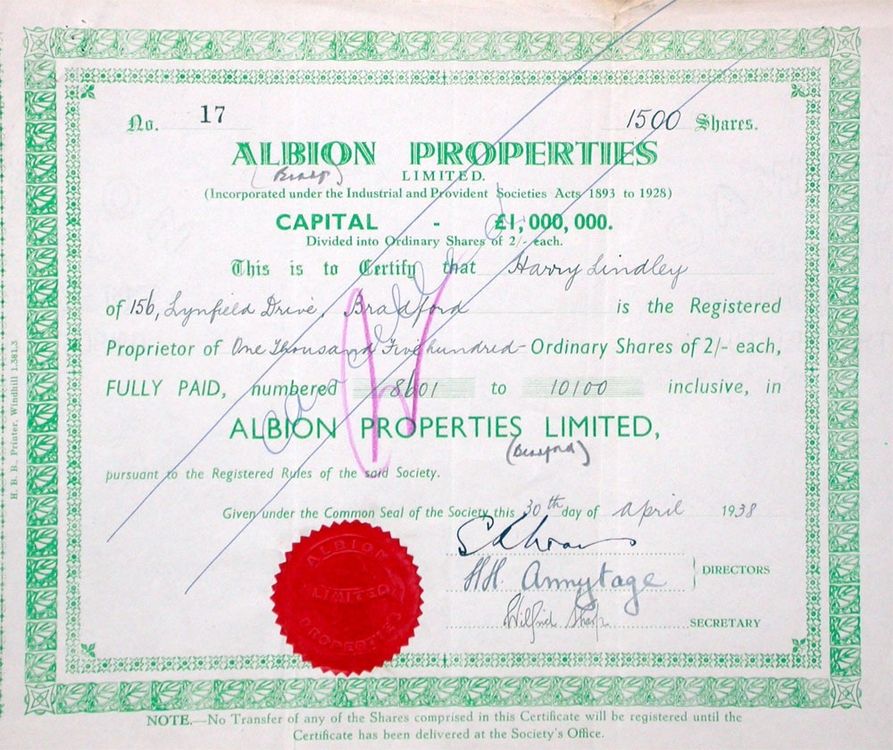 No. 17 1500 Shares.
ALBION PROPERTIES
LIMITED.
(Incorporated under the Industrial and Provident Societies Acts 1893 to 1928)
CAPITAL - £1,000,000.
Divided into Ordinary Shares of 2/- each.
This is to Certify that Harry Lindley
of 156, Lynfield Drive, Bradford is the Registered
Proprietor of One Thousand Five hundred Ordinary Shares of 2/- each,
FULLY PAID, numbered 8601 to 10100 inclusive, in
ALBION PROPERTIES LIMITED,
pursuant to the Registered Rules of the said Society.
Given under the Common Seal of the Society this 30th day of April 1938
H.H. Armytage
DIRECTORS
Wilfrid Sharp
SECRETARY
cancelled
ALBION
LIMITED
PROPERTIES
H. B. B. Printer, Windhill 1.381.3
NOTE.—No Transfer of any of the Shares comprised in this Certificate will be registered until the
Certificate has been delivered at the Society's Office.